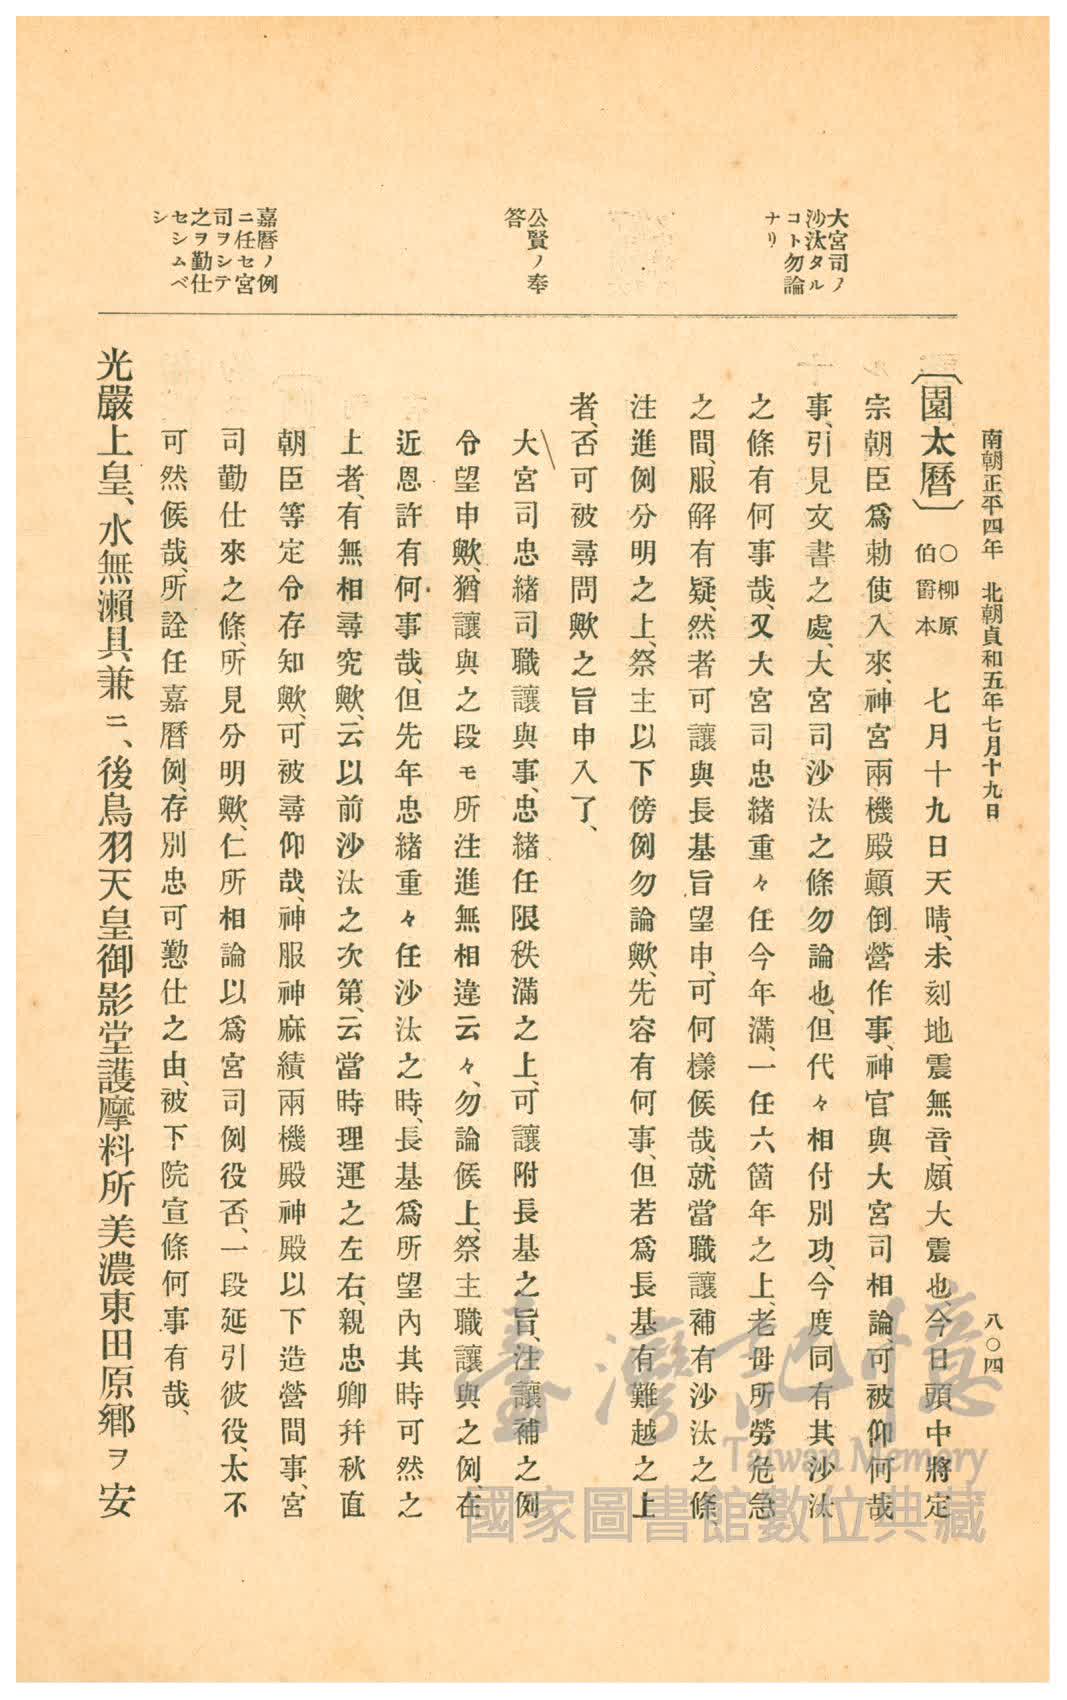 南朝正平四年　北朝貞和五年七月十九日
八〇四
大宮司ノ
沙汰タル
コト勿論
ナリ
公賢ノ奉
答
嘉曆ノ例
ニ任セ宮
司ヲシテ
之ヲ勤仕
セシムベ
シ
〔園太曆〕○柳原伯爵本　七月十九日天晴、未刻地震無音、頗大震也、今日頭中將定
宗朝臣爲勅使入來、神宮兩機殿顚倒營作事、神官與大宮司相論、可被仰何哉
事、引見文書之處、大宮司沙汰之條勿論也、但代々相付別功、今度同有其沙汰
之條有何事哉、又大宮司忠緒重々任今年滿、一任六箇年之上、老母所勞危急
之間、服解有疑、然者可讓與長基旨望申、可何樣候哉、就當職讓補有沙汰之條、
注進例分明之上、祭主以下傍例勿論歟、先容有何事、但若爲長基有難越之上
者、否可被尋問歟之旨申入了、
大宮司忠緒司職讓與事、忠緒任限秩滿之上、可讓附長基之旨、注讓補之例
令望申歟、猶讓與之段モ所注進無相違云々、勿論候上、祭主職讓與之例、在
近恩許有何事哉、但先年忠緒重々任沙汰之時、長基爲所望內其時可然之
上者、有無相尋究歟、云以前沙汰之次第、云當時理運之左右、親忠卿幷秋直
朝臣等定令存知歟、可被尋仰哉、神服神麻績兩機殿神殿以下造營間事、宮
司勤仕來之條、所見分明歟、仁所相論以爲宮司例役否、一段延引彼役、太不
可然候哉、所詮任嘉曆例、存別忠可懃仕之由、被下院宣條何事有哉、
光嚴上皇、水無瀨具兼ニ、後鳥羽天皇御影堂護摩料所美濃東田原鄉ヲ安
臺灣記憶
Taiwan Memory
國家圖書館數位典藏